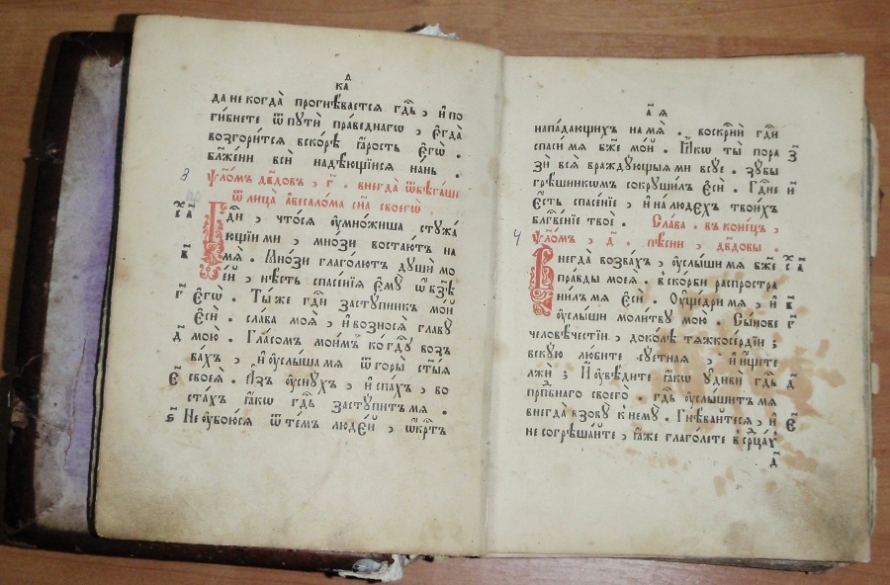 ка
да не когда̀ прогнѣ́вается гдⷭ҇ь , и҆ по
ги́бнете ѿ пꙋтѝ пра́веднагѡ , є҆гда̀
возгори́тся вско́рѣ ꙗ҆́рость є҆гѡ̀ .
бл҃же́ни всѝ надѣ́ющїися на́нь .
3
ѱало́мъ дв҃довъ , г҃ . внегда̀ ѿбѣга́ше
ѿ лица̀ а҆весало́ма сн҃а своегѡ̀ .
Гдⷭ҇и , что́ся ᲂу҆мно́жиша стꙋжа́
ющїи ми , мно́зи востаю́тъ на
мя̀ . Мно́зи глаго́лютъ дꙋшѝ мо
е́й , нѣ́сть спасе́нїя є҆мꙋ̀ ѡ҆ бз҃ѣ
є҆гѡ̀ . Ты́ же гдⷭ҇и застꙋ́пникъ мо́й
є҆сѝ . сла́ва моя̀ , и҆ вознося̀ главꙋ̀
мою̀ . Гла́сомъ мои́мъ ко гдⷭ҇ꙋ воз
ва́хъ , и҆ ᲂу҆слы́ша мя ѿ горы̀ ст҃ы́я
своея̀ . А҆́зъ ᲂу҆снꙋ́хъ , и҆ спа́хъ , во
ста́хъ ꙗ҆́кѡ гдⷭ҇ь застꙋ́питъ мя .
Не ᲂу҆бою́ся ѿ те́мъ люде́й , ѡ҆́крⷭ҇тъ
напа́дающихъ на мя̀ . воскрⷭ҇нѝ гдⷭ҇и
спаси́ мя бж҃е мо́й . Ꙗ҆́кѡ ты̀ пора
зѝ вся̀ враждꙋ́ющыя ми всꙋ́е . зꙋ́бы
грѣ́шникѡмъ сокрꙋши́лъ є҆сѝ . Гдⷭ҇не
є҆́сть спасе́нїе , и҆ на лю́дехъ твои́хъ
блгⷭ҇ве́нїе твоѐ . Сла́ва . въ коне́цъ ,
4
ѱало́мъ , д҃ . пѣ́сни , дв҃довы .
Внегда̀ возва́хъ , ᲂу҆слы́ша мя бж҃е
пра́вды моея̀ . в ско́рби распростра
ни́лъ мя є҆сѝ . Оу҆ще́дри мя , и҆
ᲂу҆слы́ши моли́твꙋ мою̀ . Сы́нове
человѣ́честїи , доко́лѣ тяжкосе́рдїи ;
вскꙋ́ю лю́бите сꙋ́етная , и҆ и҆́щите
лжѝ ; И҆ ᲂу҆вѣ́дите ꙗ҆́кѡ ᲂу҆дивѝ гдⷭ҇ь
прпⷣбнаго своего̀ . гдⷭ҇ь ᲂу҆слы́шитъ мя
внегда̀ взовꙋ̀ к немꙋ̀ . Гнѣ́вайтеся , и҆
не согрѣша́йте , ꙗ҆́же глаго́лете в срⷣца́хъ